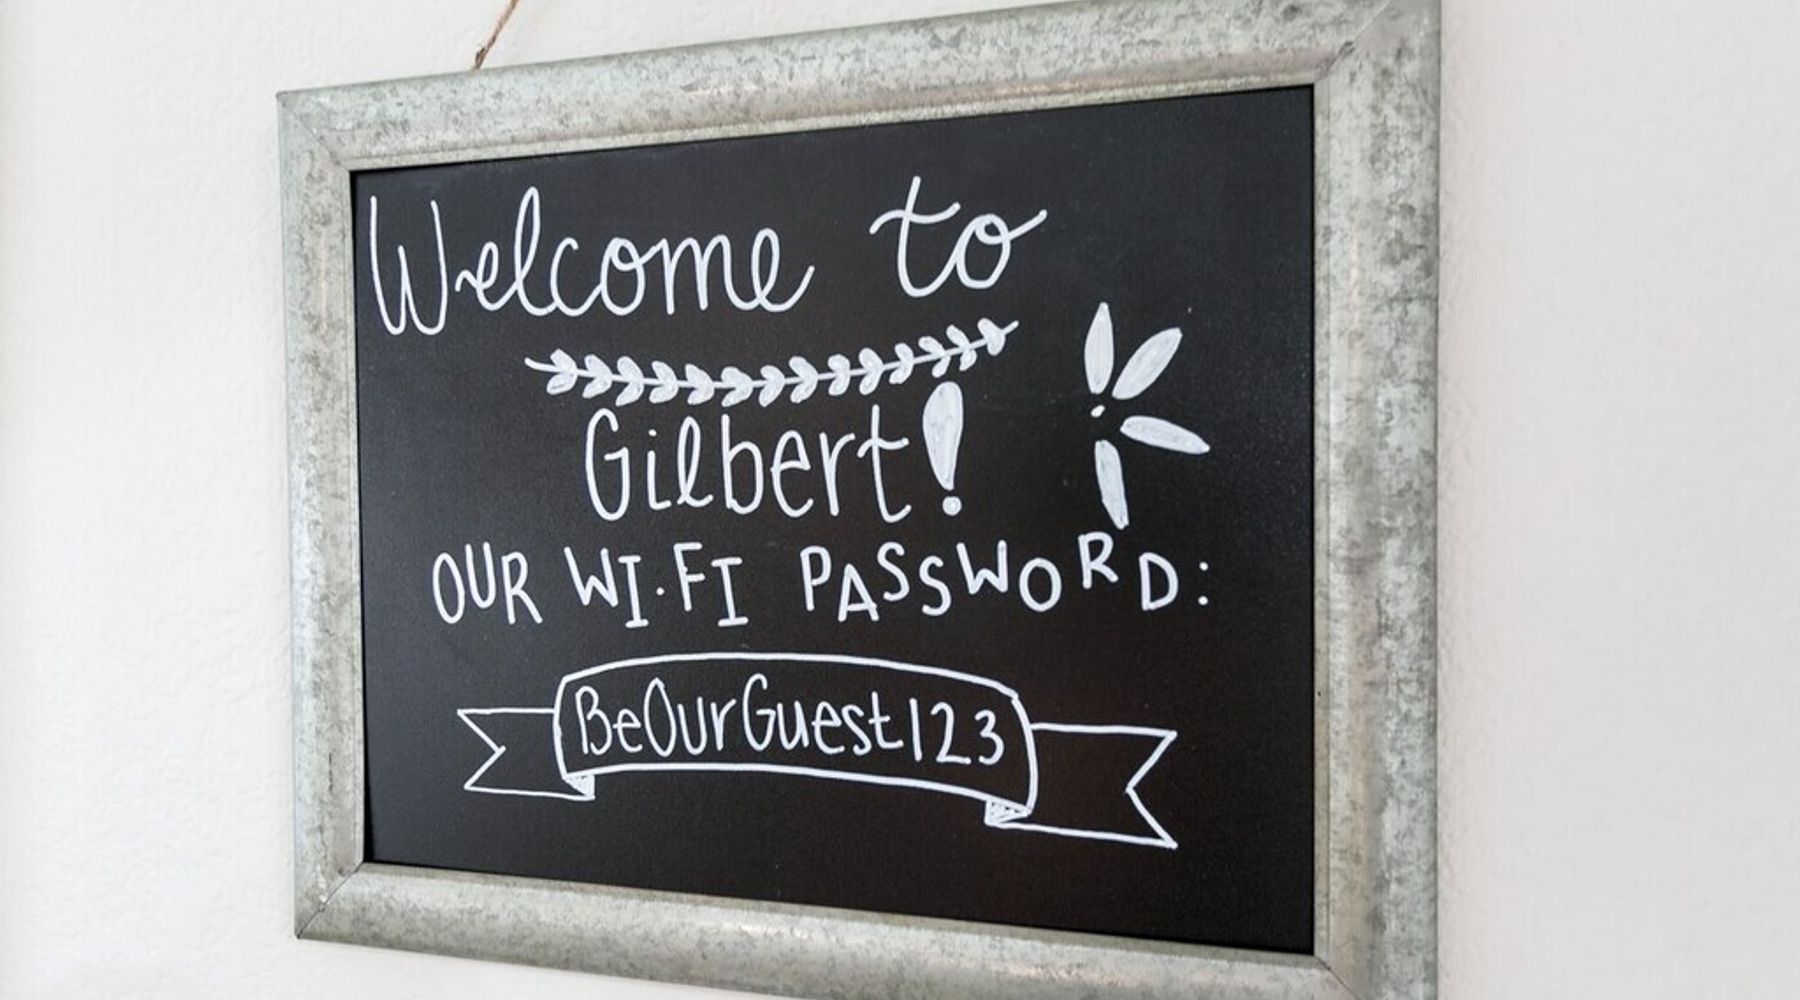 Welcome to
Gilbert!
OUR WI-FI PASSWORD:
BeOurGuest123